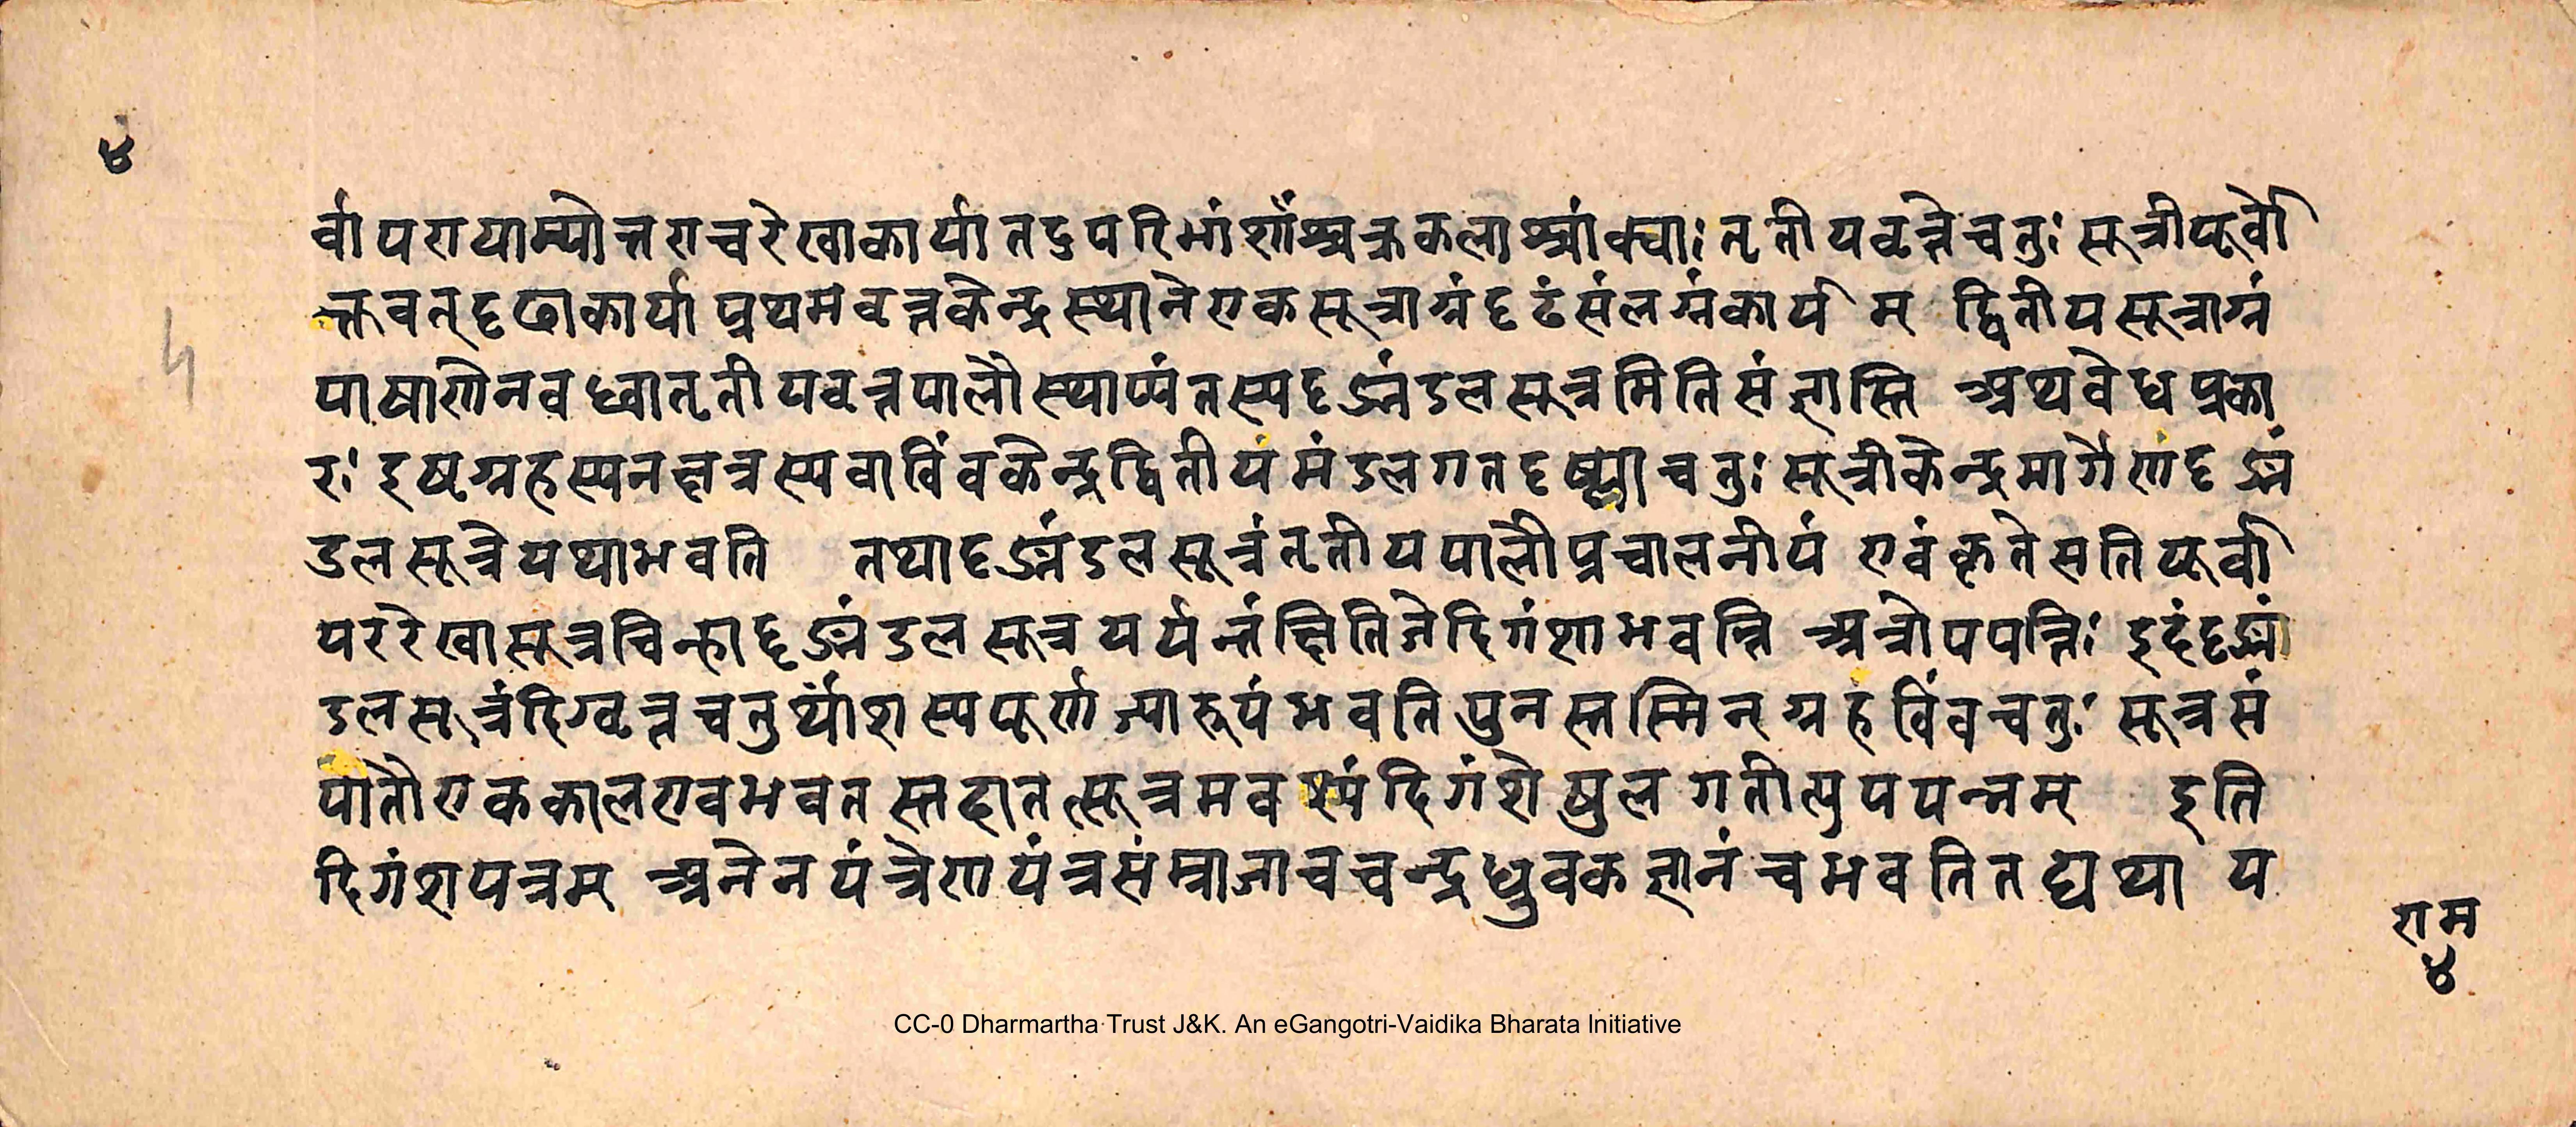 ४
र्वापरायाम्योत्तराचरेखाकार्यातदुपरिभांशाँश्चक्रकलाश्चांक्याः तृतीयवृत्तेचतुः सूत्रीपूर्वो
क्तवत् दृढाकार्या प्रथमंवृत्तकेन्द्रस्थानेएकसूत्राग्रंदृढंसंलग्नंकार्यम् द्वितीयसूत्राग्रं
पाषाणेनवध्वातृतीयवृत्तपालौस्थाप्यंतस्यदृङ्मंडलसूत्रमितिसंज्ञास्ति अथवेधप्रका
रः इष्टग्रहस्यनक्षत्रस्यवाविंवकेन्द्रद्वितीयंमंडलगतदृष्ट्याचतुः सूत्रीकेन्द्रमार्गेणदृङ्मं
डलसूत्रेयथाभवति तथादृङ्मंडलसूत्रंतृतीयपालौप्रचालनीयं एवंकृतेसतिपूर्वा
पररेखासूत्रचिन्हादृङ्मंडलसूत्रपर्यन्तंक्षितिजेदिगंशाभवन्ति अत्रोपपत्तिः इदंदृङ्मं
डलसूत्रंदिग्वृत्तचतुर्थांशस्यपूर्णज्यारूपंभवतिपुनस्तस्मिन्ग्रहविंवचतुः सूत्रसं
पातौएककालएवभवतस्तदातत्सूत्रमवश्यंदिगंशेषुलगतीत्युपपन्नम् इति
दिगंशपत्रम् अनेनयंत्रेणयंत्रसंम्राजाचचन्द्रध्रुवकज्ञानंचभवतितद्यथा य
राम
४
CC-0 Dharmartha Trust J&K. An eGangotri-Vaidika Bharata Initiative